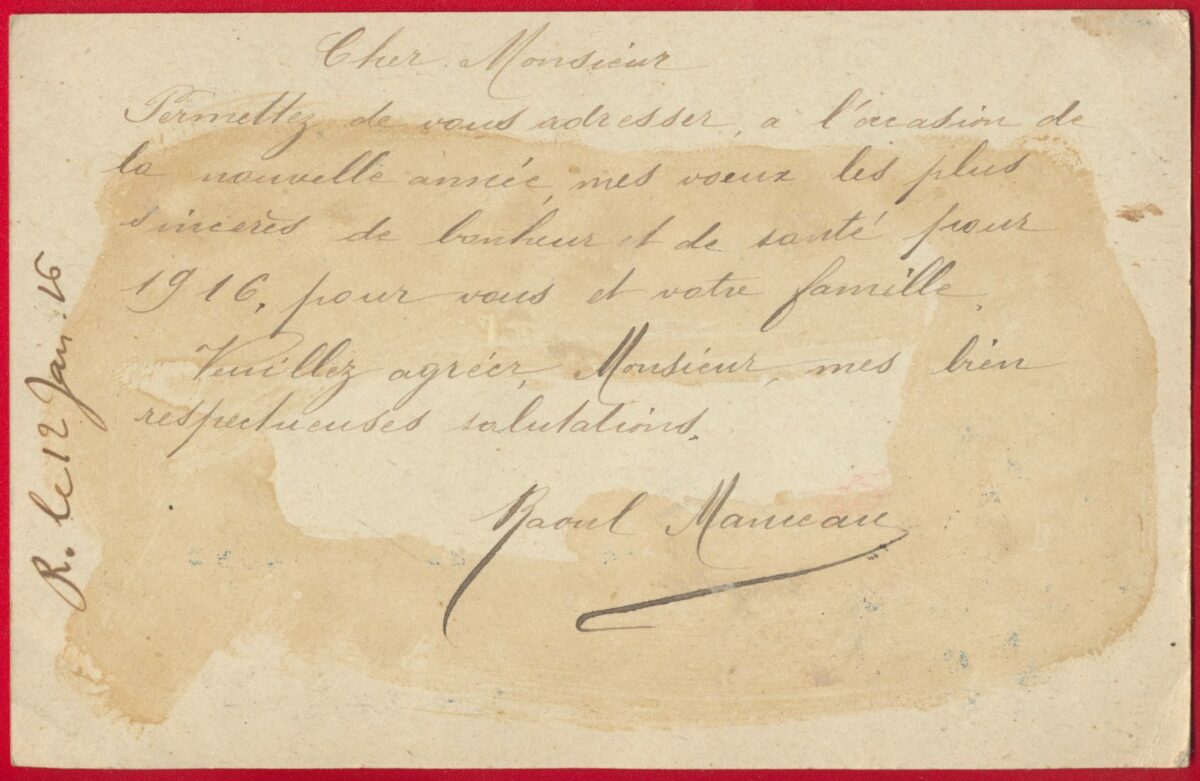 Cher Monsieur
Permettez de vous adresser, a l'occasion de
la nouvelle année, mes voeux les plus
sincères de bonheur et de santé pour
1916, pour vous et votre famille.
Veuillez agréer, Monsieur, mes bien
respectueuses salutations.
Raoul
R. le 12 Jan 16